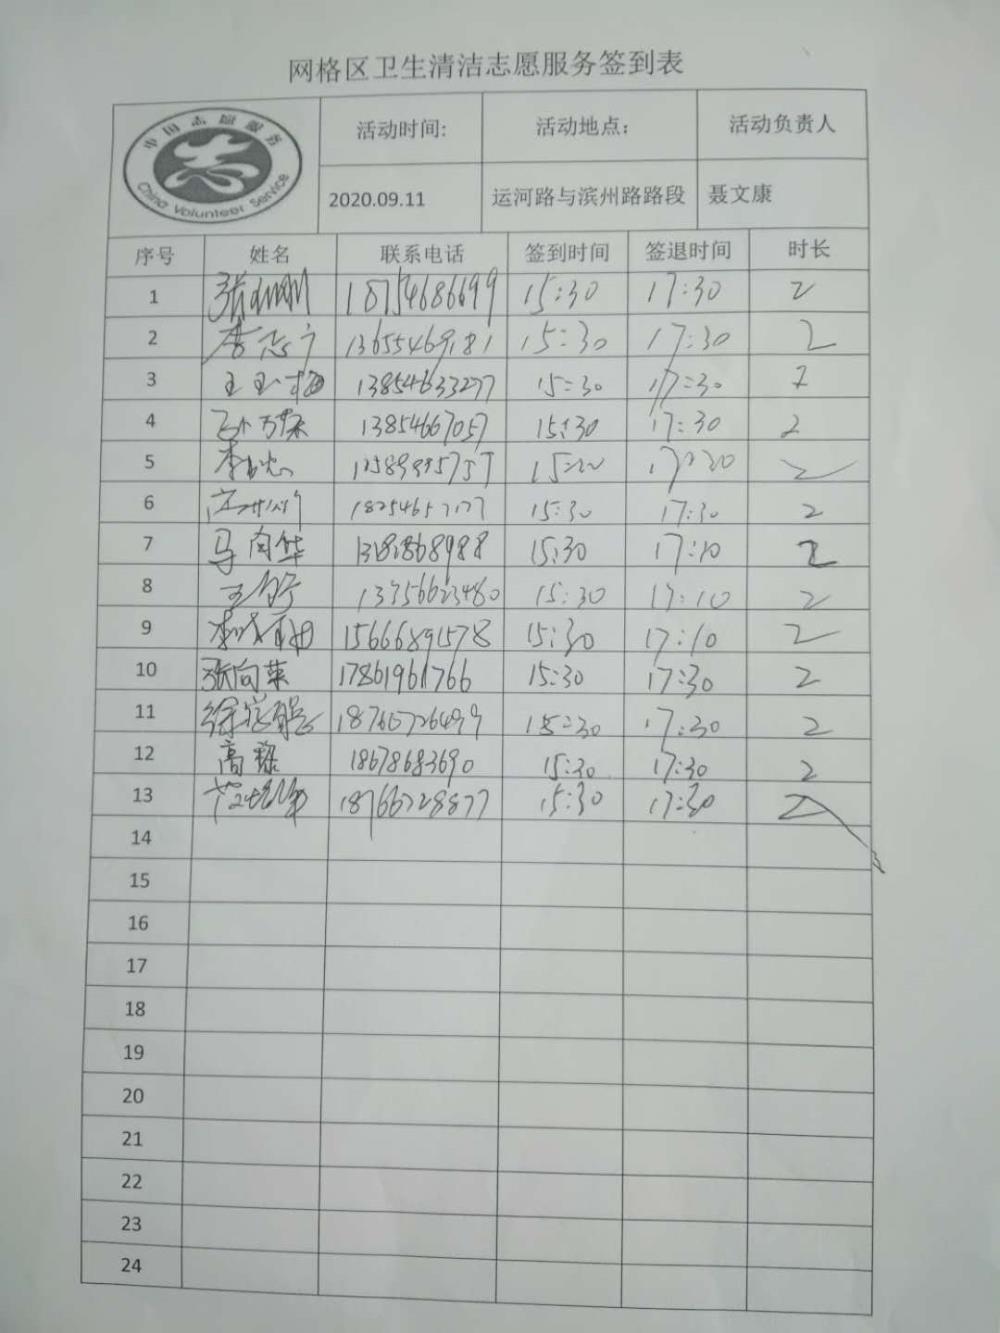 网格区卫生清洁志愿服务签到表
中国志愿服务
China Volunteer Service
活动时间: 活动地点: 活动负责人
2020.09.11 运河路与滨州路路段 聂文康
序号 姓名 联系电话 签到时间 签退时间 时长
1 15:30 17:30 2
2 李志 13655469181 15:30 17:30 2
3 王玉梅 13854633277 15:30 17:30 2
4 13854667057 15:30 17:30 2
5 李 2
6 15:30 17:30 2
7 马向华 15:30 17:10 2
8 王 15:30 17:10 2
9 李 15666891578 15:30 17:10 2
10 张向荣 17861961766 15:30 17:30 2
11 徐 18760726499 15:30 17:30 2
12 高 18678683690 15:30 17:30 2
13 18766728877 15:30 17:30 2
14
15
16
17
18
19
20
21
22
23
24